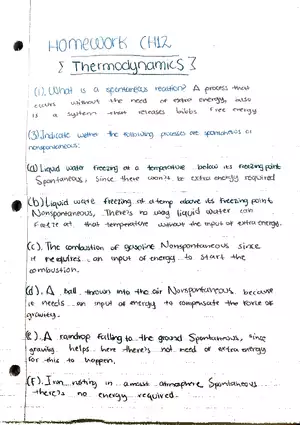 Homework CH12
{ Thermodynamics }
(1). What is a spontaneous reaction? A process that
occurs without the need of extra energy, also
is a system that releases Gibbs free energy
(3) Indicate wether the following processes are spontaneous or
nonspontaneous:
(a) Liquid water freezing at a temperature below its freezing point
Spontaneous, since there won't be extra energy required
(b) Liquid water freezing at a temp above its freezing point
Nonspontaneous, There's no way liquid water can
freeze at that temperature without the input of extra energy.
(c). The combustion of gasoline Nonspontaneous since
it requires an input of energy to start the
combustion.
(d). A ball thrown into the air Nonspontaneous because
it needs an input of energy to compensate the force of
gravity.
(e). A raindrop falling to the ground Spontaneous, since
gravity helps here there's not need of extra energy
for this to happen.
(f). Iron rusting in a moist atmosphere Spontaneous
there's no energy required.